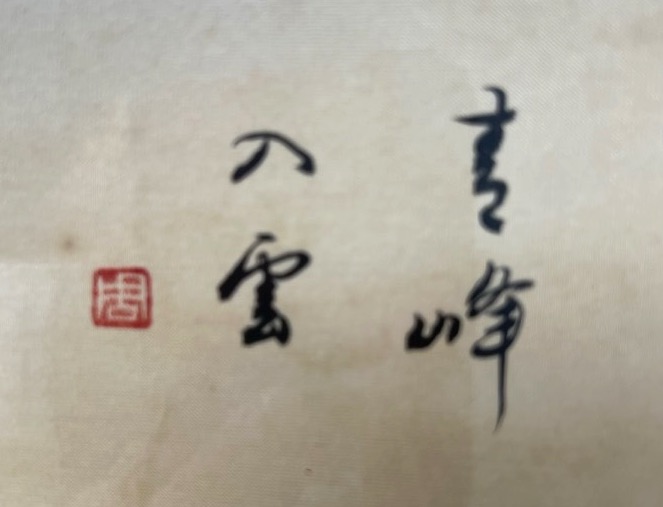 青峰
入雲
周